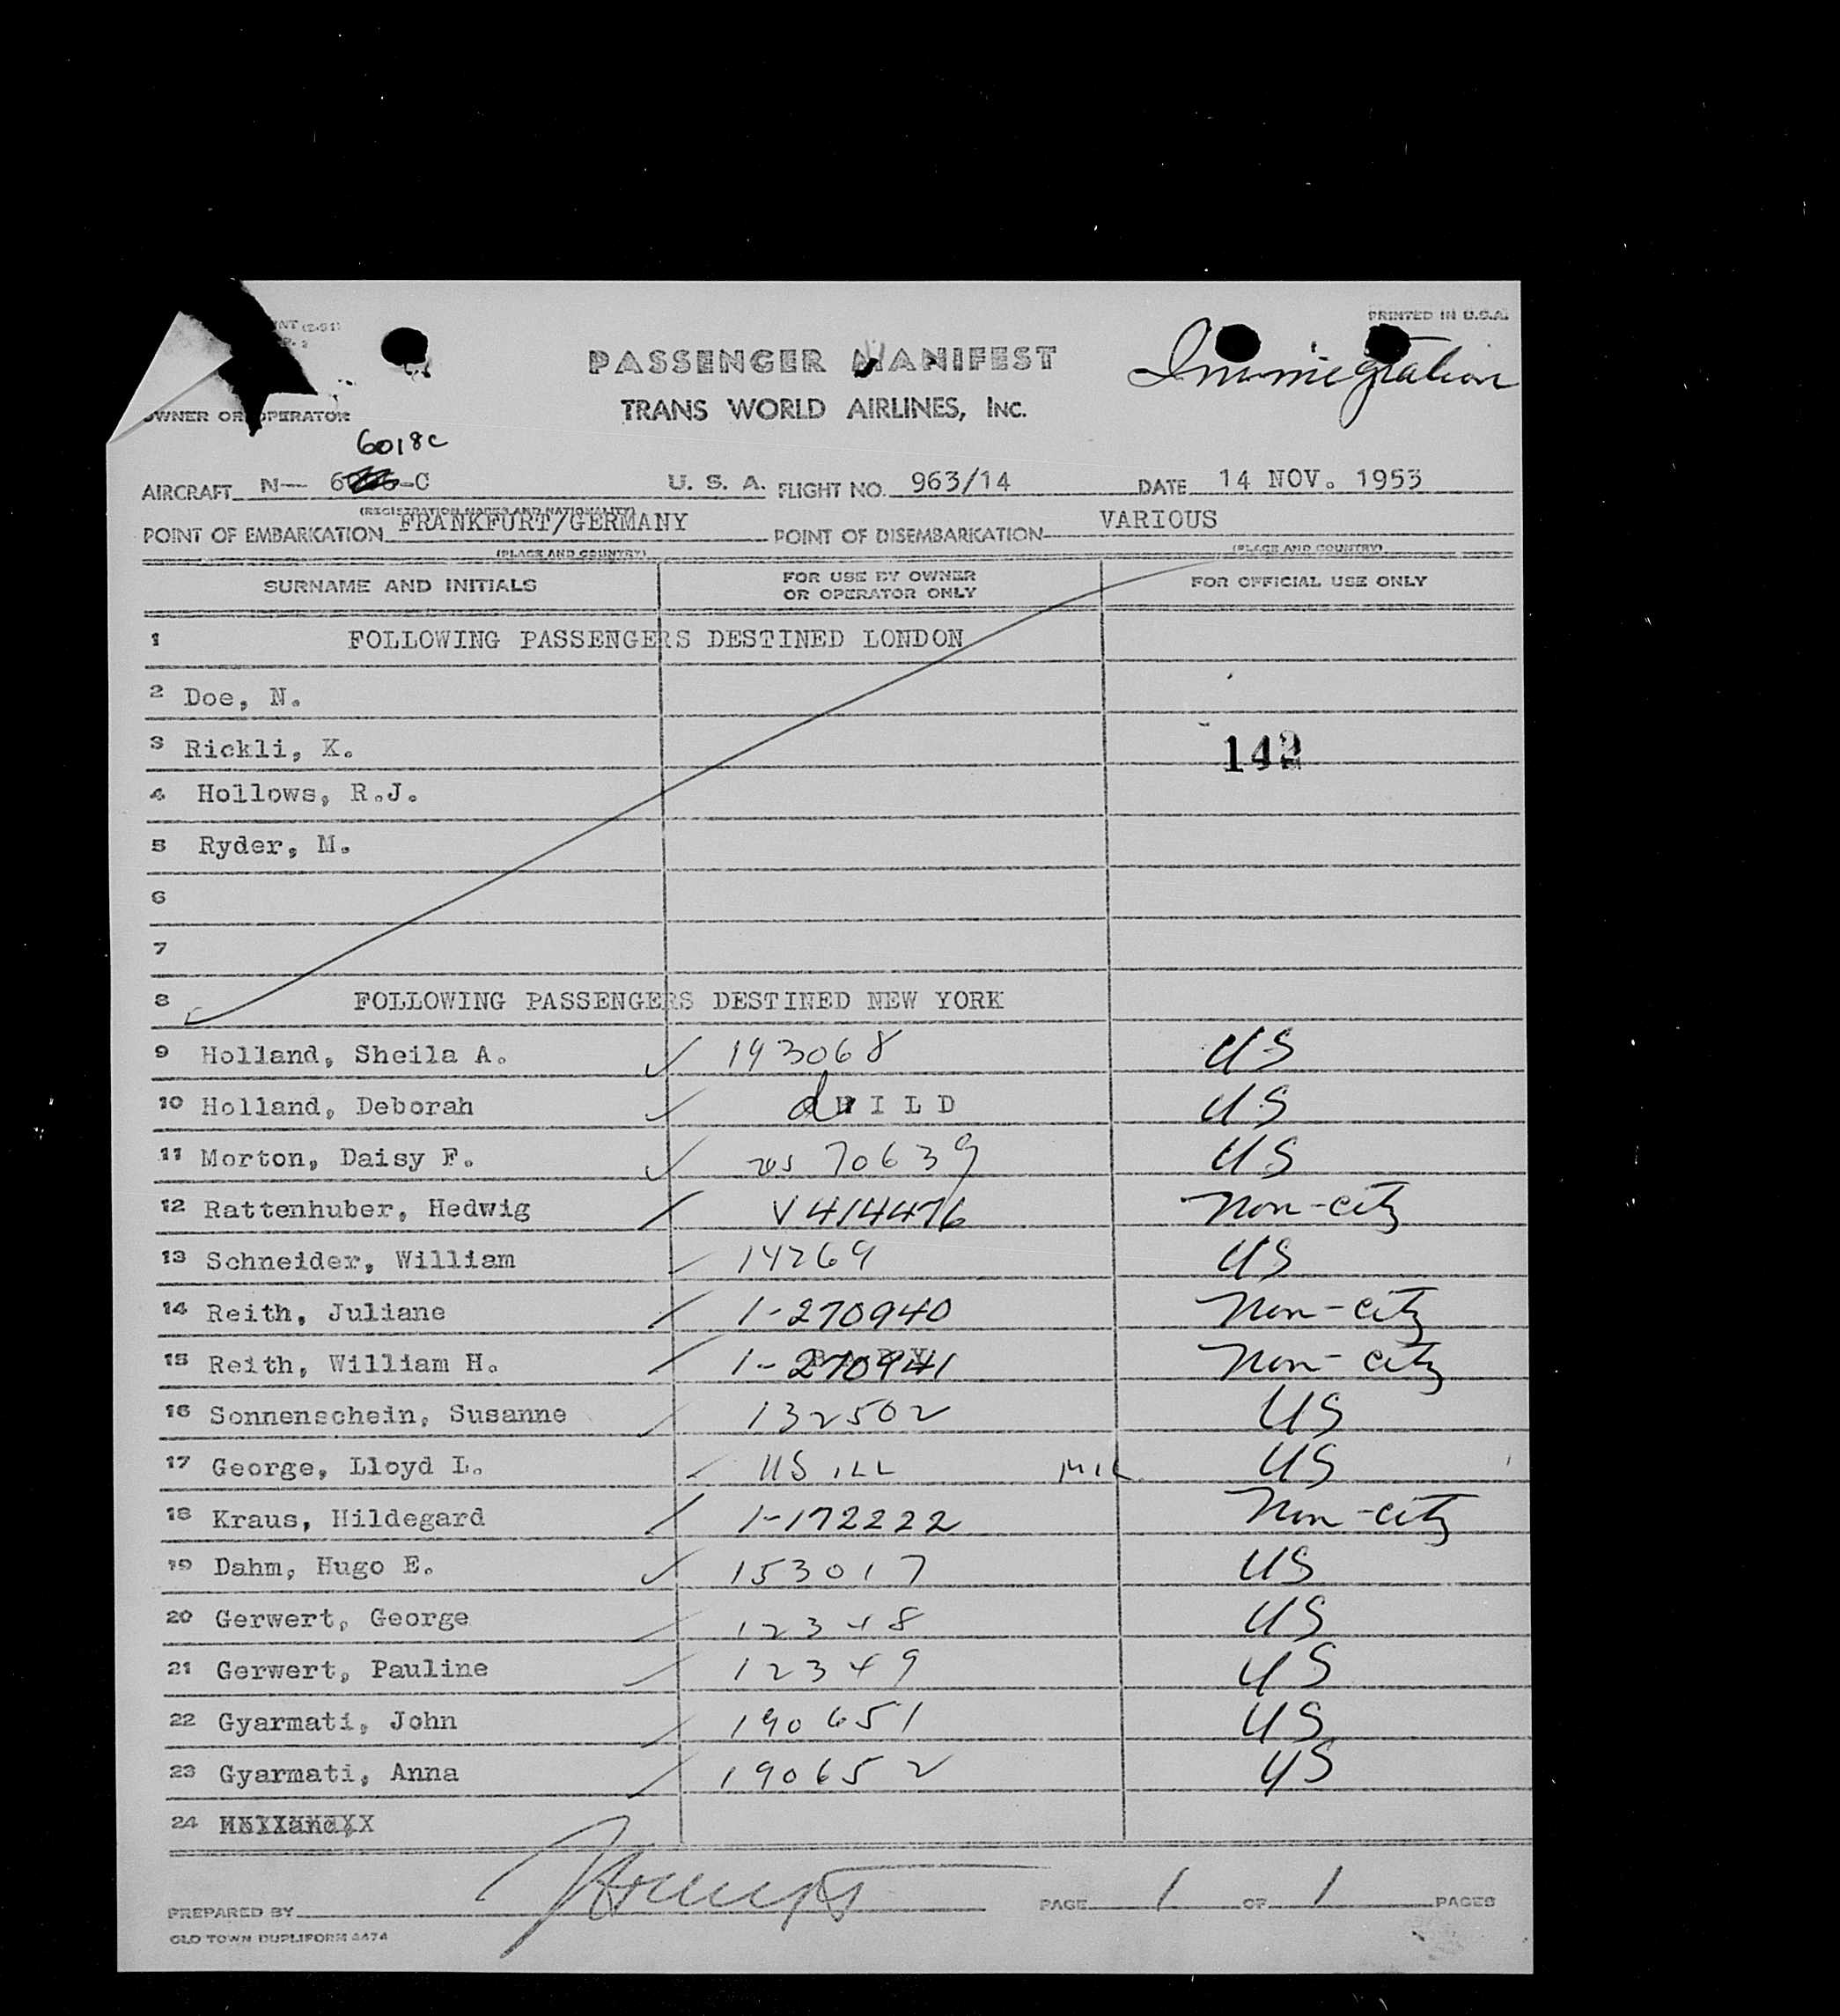 NT (2-51)
P. 2
PRINTED IN U.S.A.
PASSENGER MANIFEST
Immigration
TRANS WORLD AIRLINES, INC.
OWNER OR OPERATOR
6018C
AIRCRAFT N— 6 -C U. S. A. FLIGHT NO. 963/14 DATE 14 NOV. 1953
(REGISTRATION MARKS AND NATIONALITY)
POINT OF EMBARKATION FRANKFURT/GERMANY POINT OF DISEMBARKATION VARIOUS
(PLACE AND COUNTRY) (PLACE AND COUNTRY)
SURNAME AND INITIALS FOR USE BY OWNER OR OPERATOR ONLY FOR OFFICIAL USE ONLY
1 FOLLOWING PASSENGERS DESTINED LONDON
2 Doe, N.
3 Rickli, K. 142
4 Hollows, R.J.
5 Ryder, M.
6
7
8 FOLLOWING PASSENGERS DESTINED NEW YORK
9 Holland, Sheila A. ✓ 193068 US
10 Holland, Deborah ✓ CHILD US
11 Morton, Daisy F. ✓ 70639 US
12 Rattenhuber, Hedwig / V414476 Non-citz
13 Schneider, William / 14269 US
14 Reith, Juliane / 1-270940 Non-citz
15 Reith, William H. / 1-270941 Non-citz
16 Sonnenschein, Susanne / 132502 US
17 George, Lloyd L. ✓ US MIL US
18 Kraus, Hildegard / 1-172222 Non-citz
19 Dahm, Hugo E. ✓ 153017 US
20 Gerwert, George / 12348 US
21 Gerwert, Pauline / 12349 US
22 Gyarmati, John / 190651 US
23 Gyarmati, Anna / 190652 US
24
PREPARED BY PAGE 1 OF 1 PAGES
OLD TOWN DUPLIFORM 4474